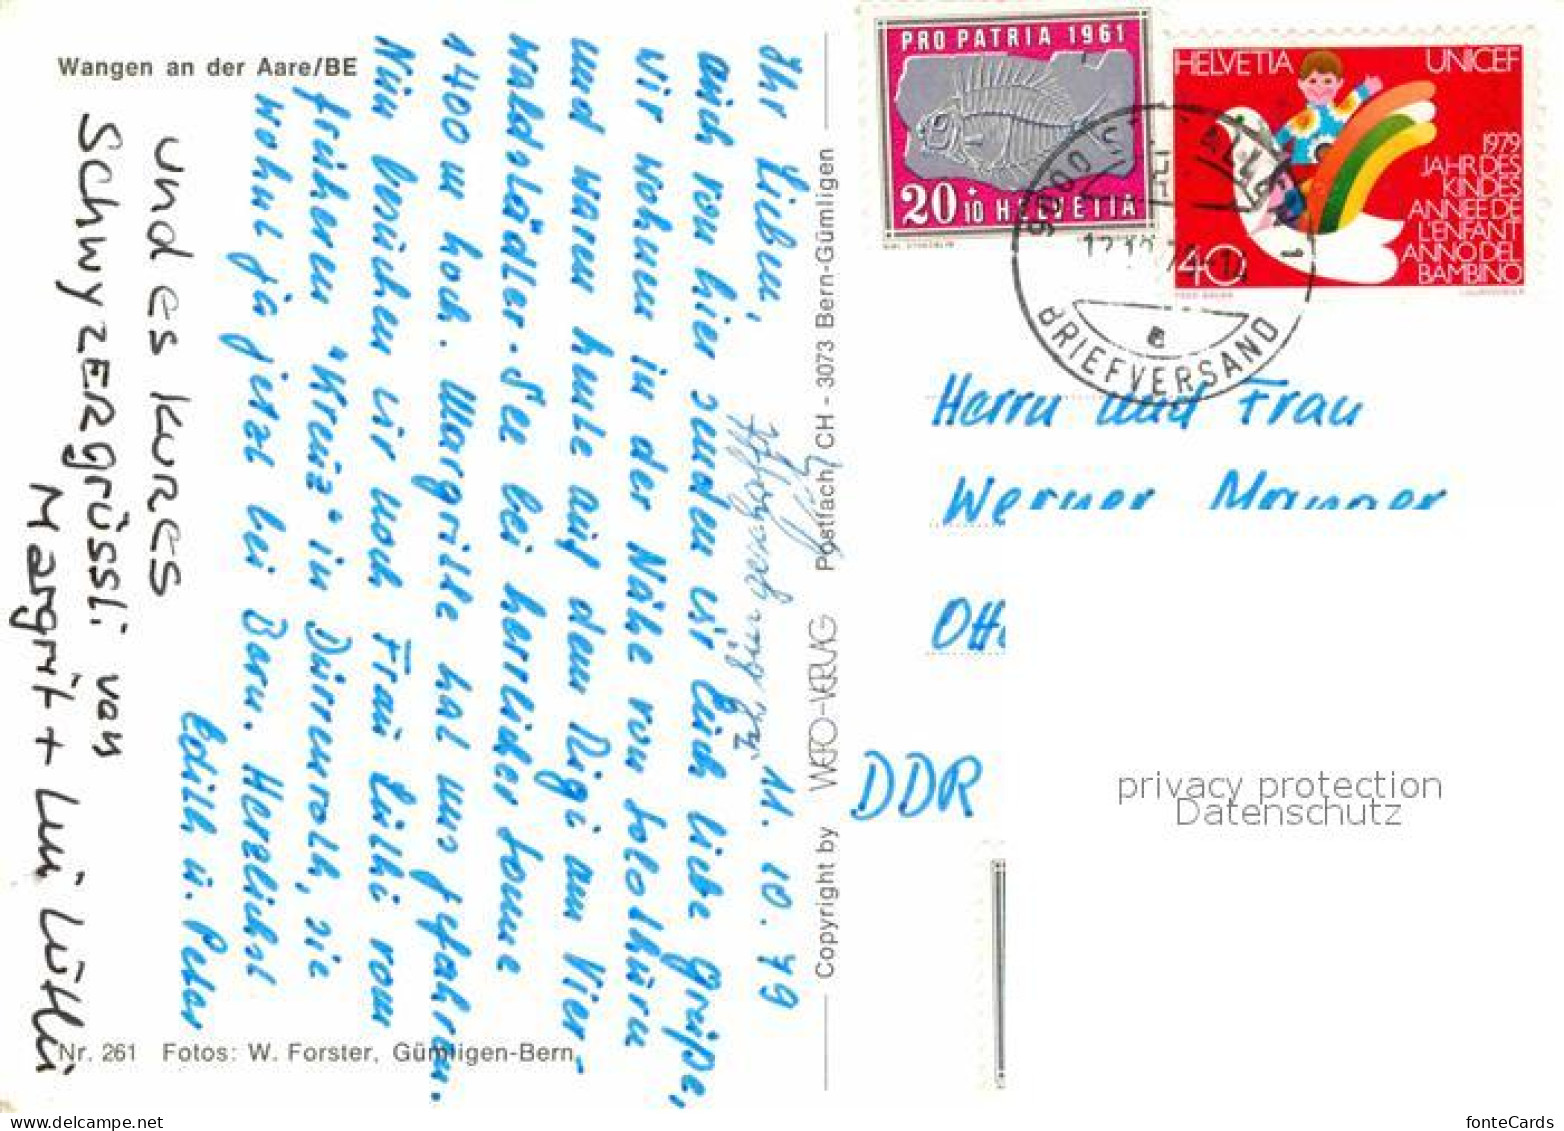 Wangen an der Aare/BE
Ihr Lieben,
11.10.79
auch von hier senden wir Euch liebe Grüße,
wir wohnen in der Nähe von Solothurn
und waren heute auf dem Rigi am Vier-
waldstädter-See bei herrlicher Sonne
1400 m hoch. Margritke hat uns gefahren.
Nun besuchen wir noch Frau Lüthi vom
früheren "Kreuz" in Dürrenroth, sie
wohnt ja jetzt bei Bern. Herzlichst
Edith u. Peter
und es kurzes
Schwyzergrüssli von
Margrit + Lüthi
Nr. 261 Fotos: W. Forster, Gümligen-Bern
Copyright by WEFO-VERLAG Postfach, CH - 3073 Bern-Gümligen
PRO PATRIA 1961
20+10 HELVETIA
HELVETIA UNICEF
1979
JAHR DES
KINDES
ANNEE DE
L'ENFANT
ANNO DEL
BAMBINO
40
BRIEFVERSAND
Herrn und Frau
Werner
DDR
privacy protection
Datenschutz
fonteCards
www.delcampe.net